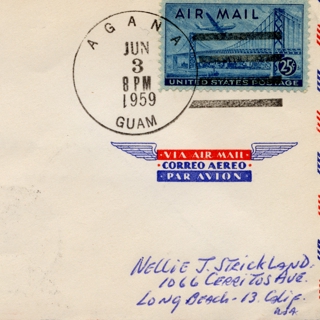 AGANA
JUN
3
8 PM
1959
GUAM
AIR MAIL
25¢
UNITED STATES POSTAGE
VIA AIR MAIL
CORREO AEREO
PAR AVION
NELLIE J. STRICKLAND.
1066 CERRITOS AVE.
LONG BEACH - 13. CALIF.
USA